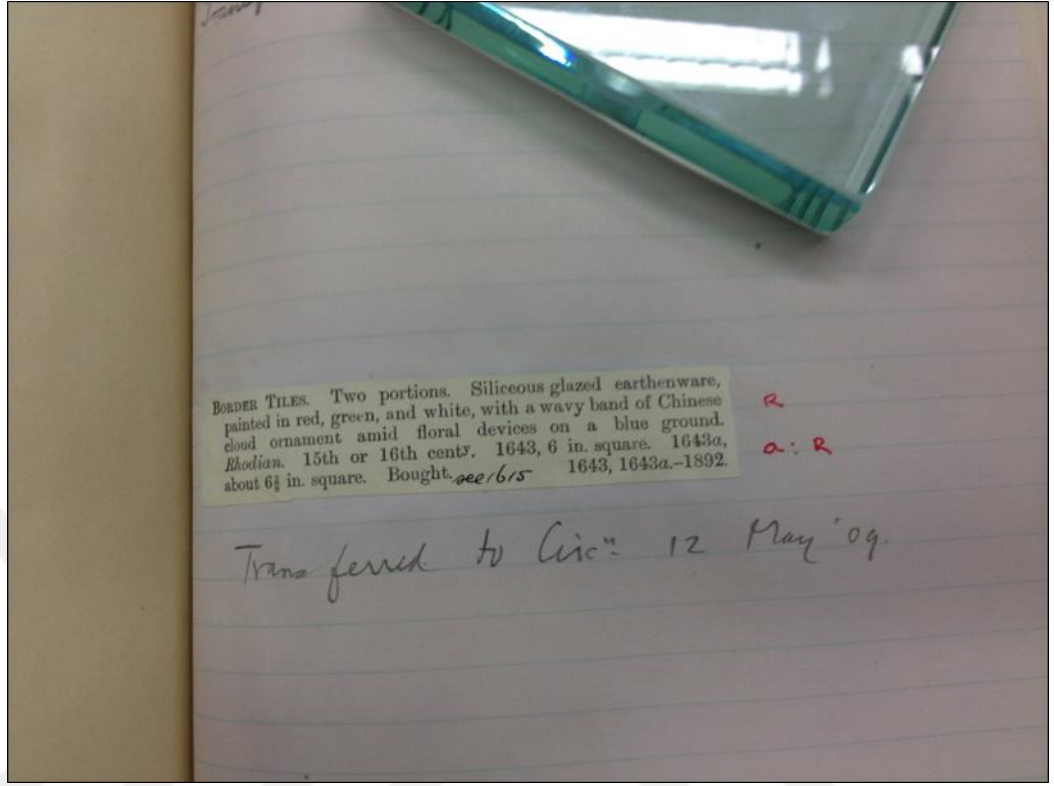 BORDER TILES. Two portions. Siliceous glazed earthenware,
painted in red, green, and white, with a wavy band of Chinese
cloud ornament amid floral devices on a blue ground.
Rhodian. 15th or 16th centy. 1643, 6 in. square. 1643a,
about 6¾ in. square. Bought. see 1615 1643, 1643a.–1892.
R
a: R
Transferred to Circn: 12 May '09.